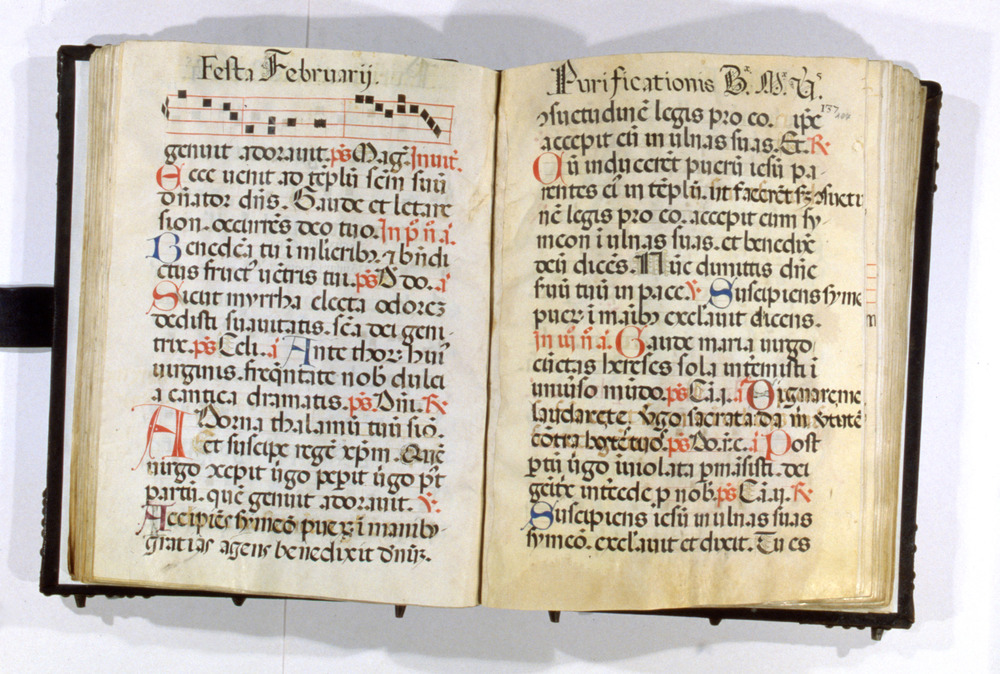 Festa Februarij.
genuit adorauit. ps Mag. Inuit.
Ecce uenit ad tēplū scm̄ suū
dn̄ator dn̄s. Gaude et letare
sion. occurrēs deo tuo. In p̄ n̄ a.
Benedc̄ta tu ī mlieribꝫ ⁊ bn̄di
ctus fruct' uētris tui. ps D do. a
Sicut myrrha electa odorez
dedisti suauitatis. sc̄a dei geni
trix. ps Celi. a Ante thorꝫ huī
uirginis. freqn̄tate nob dulci
a cantica dramatis. ps Dn̄i. R
Adorna thalamū tuū siō.
et suscipe regē xp̄m. Quē
uirgo ɔcepit ūgo pepit ūgo p̄t
partū. quē genuit adorauit. V.
Accipiēs symeō pueꝝ ī manibꝫ
gratias agens benedixit dn̄m.
Purificationis B. M. V.
137
ɔsuetudinē legis pro eo. ipē
accepit eū in ulnas suas. Et. R
Cū inducerēt puerū iesū pa-
rentes ei' in tēplū. ut facerēt sꝫ ɔsuetu
nē legis pro eo. accepit eum sy-
meon ī ulnas suas. et benedixit
deū dicēs. Nūc dimittis dn̄e
suū tuū in pace. V Suscipiens syme
pueꝝ ī manibꝫ exclauit dicens.
in iij n̄ a. Gaude maria uirgo
cūctas hereses sola intemisti ī
uniūso mūdo. ps Cā. i. a Dignare me
laudare te. v̄go sacrata da m̄ v̄tutē
cōtra hostes tuos. ps Do. i. c. a Post
p̄tū ūgo īuiolata pmāsisti. dei
geītx intcede p nob. ps Cā. ij. R
Suscipiens iesū in ulnas suas
symeō. exclauit et dixit. Tu es